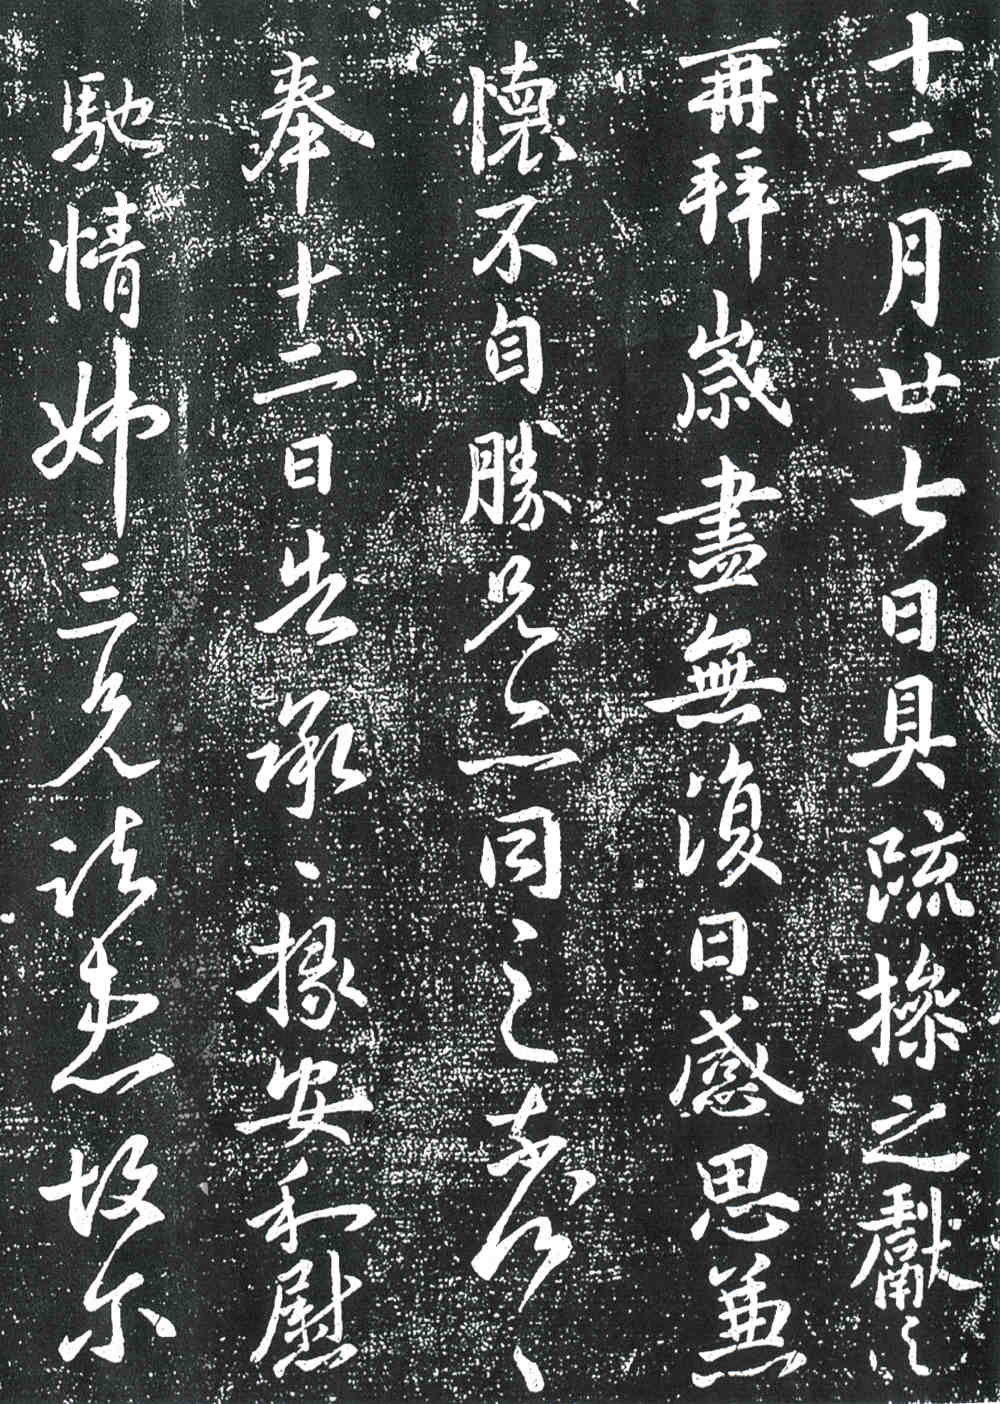 十二月廿七日具疏操之獻之
再拜歲盡無復日感思兼
懷不自勝兄亦同之奈何〻
奉十二日告承〻掾安和慰
馳情姊三兄諸患故尔